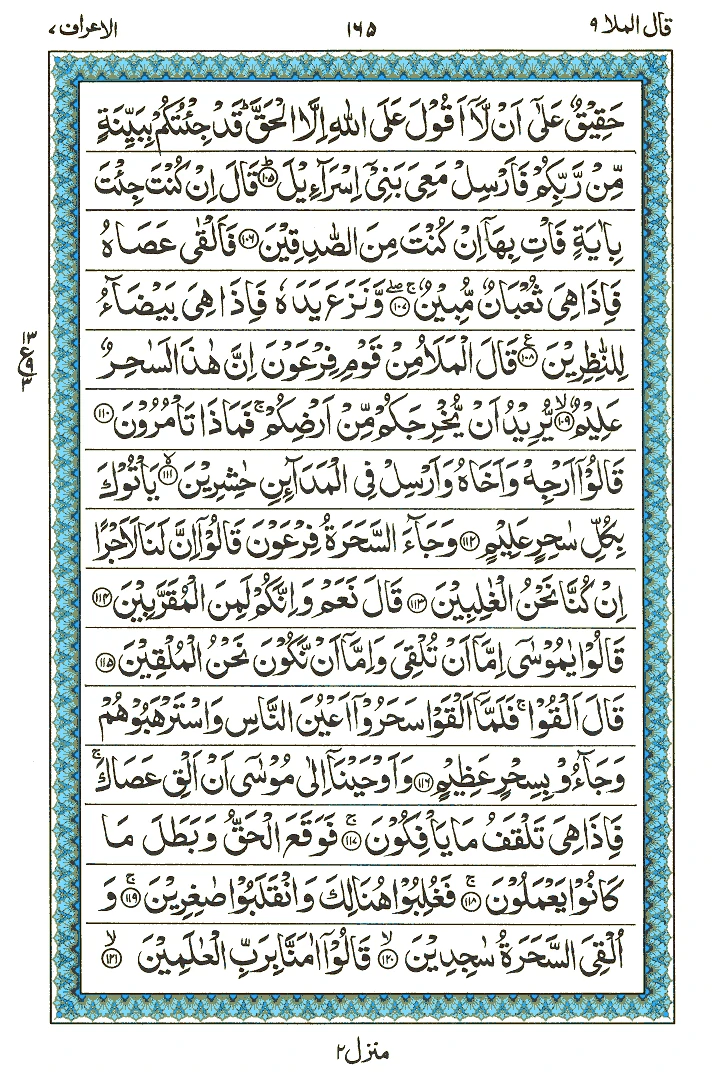 قال الملا ٩
١٦٥
الاعراف ٧
حَقِيْقٌ عَلٰۤى اَنْ لَّاۤ اَقُوْلَ عَلَى اللّٰهِ اِلَّا الْحَقَّ ؕ قَدْ جِئْتُكُمْ بِبَيِّنَةٍ
مِّنْ رَّبِّكُمْ فَاَرْسِلْ مَعِىَ بَنِىْۤ اِسْرَآءِيْلَ ؕ ﴿١٠٥﴾ قَالَ اِنْ كُنْتَ جِئْتَ
بِاٰيَةٍ فَاْتِ بِهَاۤ اِنْ كُنْتَ مِنَ الصّٰدِقِيْنَ ﴿١٠٦﴾ فَاَلْقٰى عَصَاهُ
فَاِذَا هِىَ ثُعْبَانٌ مُّبِيْنٌ ۚ ۖ ﴿١٠٧﴾ وَّنَزَعَ يَدَهٗ فَاِذَا هِىَ بَيْضَآءُ
لِلنّٰظِرِيْنَ ﴿١٠٨﴾ ع قَالَ الْمَلَاُ مِنْ قَوْمِ فِرْعَوْنَ اِنَّ هٰذَا لَسٰحِرٌ
عَلِيْمٌ ۙ ﴿١٠٩﴾ يُّرِيْدُ اَنْ يُّخْرِجَكُمْ مِّنْ اَرْضِكُمْ ۚ فَمَاذَا تَاْمُرُوْنَ ﴿١١٠﴾
قَالُوْۤا اَرْجِهْ وَاَخَاهُ وَاَرْسِلْ فِى الْمَدَآئِنِ حٰشِرِيْنَ ۙ ﴿١١١﴾ يَاْتُوْكَ
بِكُلِّ سٰحِرٍ عَلِيْمٍ ﴿١١٢﴾ وَجَآءَ السَّحَرَةُ فِرْعَوْنَ قَالُوْۤا اِنَّ لَنَا لَاَجْرًا
اِنْ كُنَّا نَحْنُ الْغٰلِبِيْنَ ﴿١١٣﴾ قَالَ نَعَمْ وَاِنَّكُمْ لَمِنَ الْمُقَرَّبِيْنَ ﴿١١٤﴾
قَالُوْا يٰمُوْسٰۤى اِمَّاۤ اَنْ تُلْقِىَ وَاِمَّاۤ اَنْ نَّكُوْنَ نَحْنُ الْمُلْقِيْنَ ﴿١١٥﴾
قَالَ اَلْقُوْا ۚ فَلَمَّاۤ اَلْقَوْا سَحَرُوْۤا اَعْيُنَ النَّاسِ وَاسْتَرْهَبُوْهُمْ
وَجَآءُوْ بِسِحْرٍ عَظِيْمٍ ﴿١١٦﴾ وَاَوْحَيْنَاۤ اِلٰى مُوْسٰۤى اَنْ اَلْقِ عَصَاكَ ۚ
فَاِذَا هِىَ تَلْقَفُ مَا يَاْفِكُوْنَ ۚ ﴿١١٧﴾ فَوَقَعَ الْحَقُّ وَبَطَلَ مَا
كَانُوْا يَعْمَلُوْنَ ۚ ﴿١١٨﴾ فَغُلِبُوْا هُنَالِكَ وَانْقَلَبُوْا صٰغِرِيْنَ ۚ ﴿١١٩﴾ وَ
اُلْقِىَ السَّحَرَةُ سٰجِدِيْنَ ۙ ﴿١٢٠﴾ قَالُوْۤا اٰمَنَّا بِرَبِّ الْعٰلَمِيْنَ ۙ ﴿١٢١﴾
منزل ٢